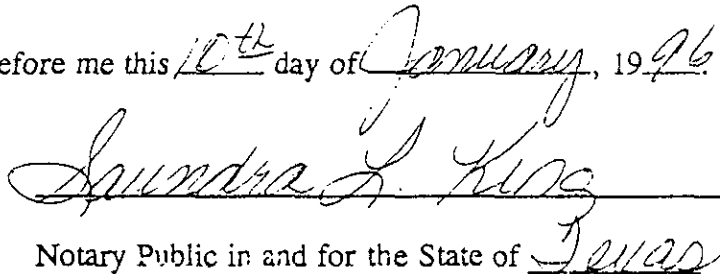 efore me this 10th day of January, 1996.
Saundra L. King
Notary Public in and for the State of Texas